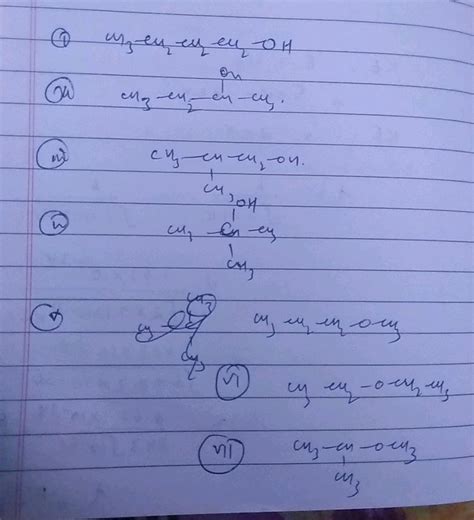 (i) CH3-CH2-CH2-CH2-OH
OH
(ii) CH3-CH2-CH-CH3.
(iii) CH3-CH-CH2-OH.
CH3
OH
(iv) CH3-C-CH3
CH3
(v) CH3 CH2 CH2-O-CH3
CH3
(VI) CH3 CH2-O-CH2-CH3
(VII) CH3-CH-OCH3
CH3